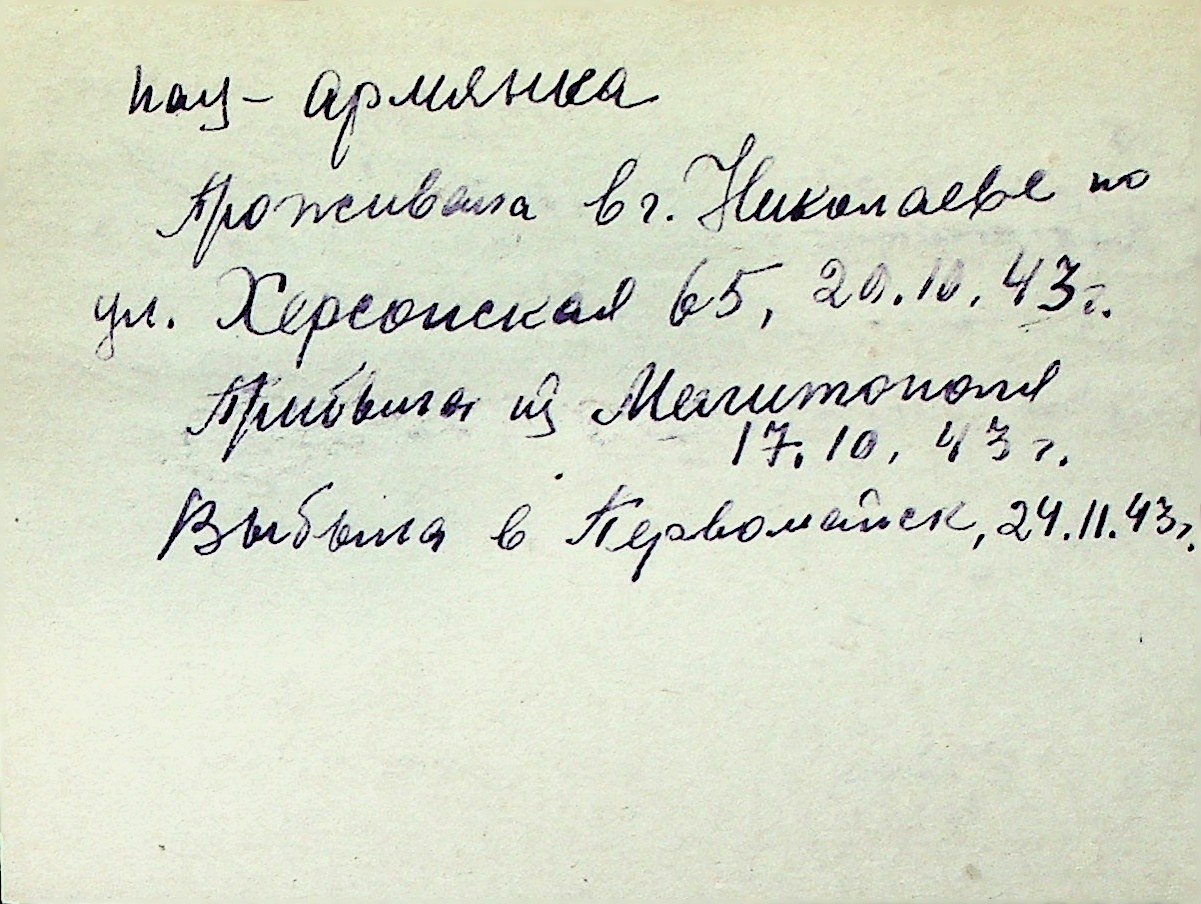 нац – армянка
Проживала в г. Николаеве по
ул. Херсонская 65, 20.10.43 г.
Прибыла из Мелитополя
17.10.43 г.
Выбыла в Первомайск, 24.11.43 г.